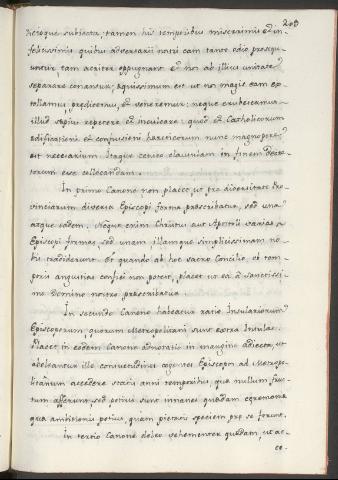 203
dicioque subiecta, tamen his temporibus miserrimis et in-
felicissimis quibus adversarii nostri eam tanto odio prosequ-
untur, tam acriter oppugnant et nos ab illius unitate
separare conantur; aequissimum est ut nos magis eam ex-
tollamus, praedicemus, et veneremur; neque erubescamus
illud saepius repetere et inculcare, quod et Catholicorum
edificationi et confusioni haereticorum nunc magnopere
est necessarium. Itaque censeo clausulam in finem decre-
torum esse collocandam.
In primo Canone non placet, ut pro diversitate Pro-
vinciarum diversa Episcopi forma praescribatur, sed una
atque eadem. Neque enim Christus aut Apostoli varias
Episcopi formas, sed unam illamque simplicissimam no-
bis tradiderunt. Et quando ab hoc sacro Concilio, ob tem-
poris angustias confici non potest, placet ut ea a Sanctissi-
mo Domino nostro praescribatur.
In secundo Canone habeatur ratio Insulariorum
Episcoporum quorum Metropolitani sunt extra Insulas.
Placet in eodem Canone adnotatio in margine adiecta, ut
aboleatur illa consuetudo cogentes Episcopos ad Metropo-
litanum accedere statis anni temporibus, quae nullum fru-
ctum afferunt, sed potius sunt inanes quaedam ceremoniae
quae ambitionis potius, quam pietatis speciem prae se ferunt.
In tertio Canone debeo vehementer quaedam, ut ac-
ce-